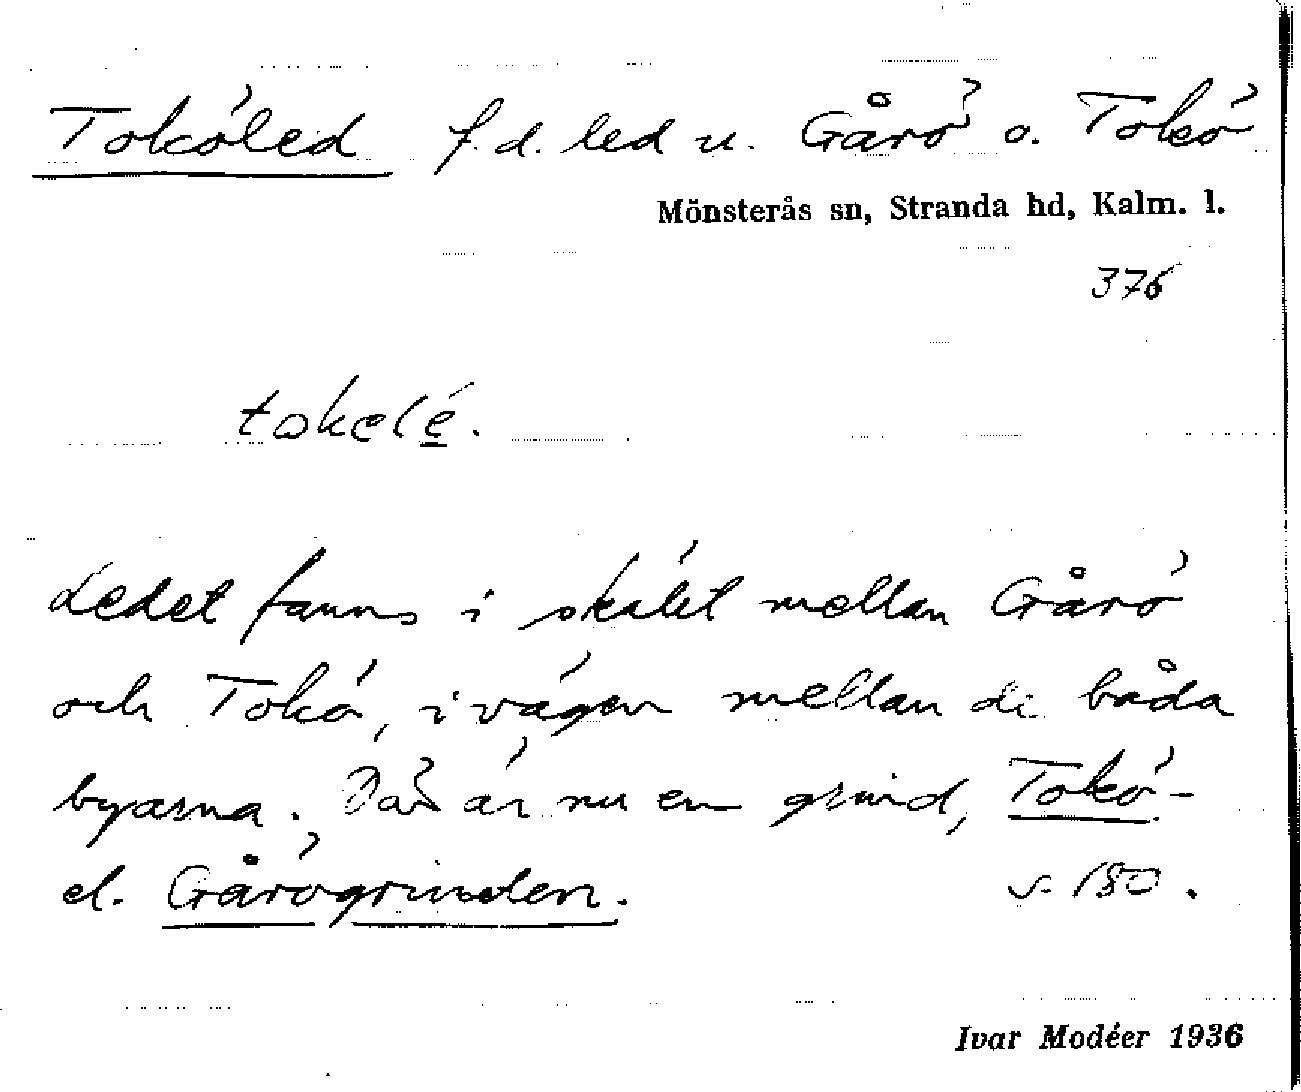 Toköled f.d. led u. Gårö o. Tokö
Mönsterås sn, Stranda hd, Kalm. l.
376
tokelé.
Ledet fanns i skälet mellan Gårö
och Tokö, i vägen mellan de båda
byarna. Där är nu en grind, Tokö-
el. Gårögrinden. s. 180.
Ivar Modéer 1936